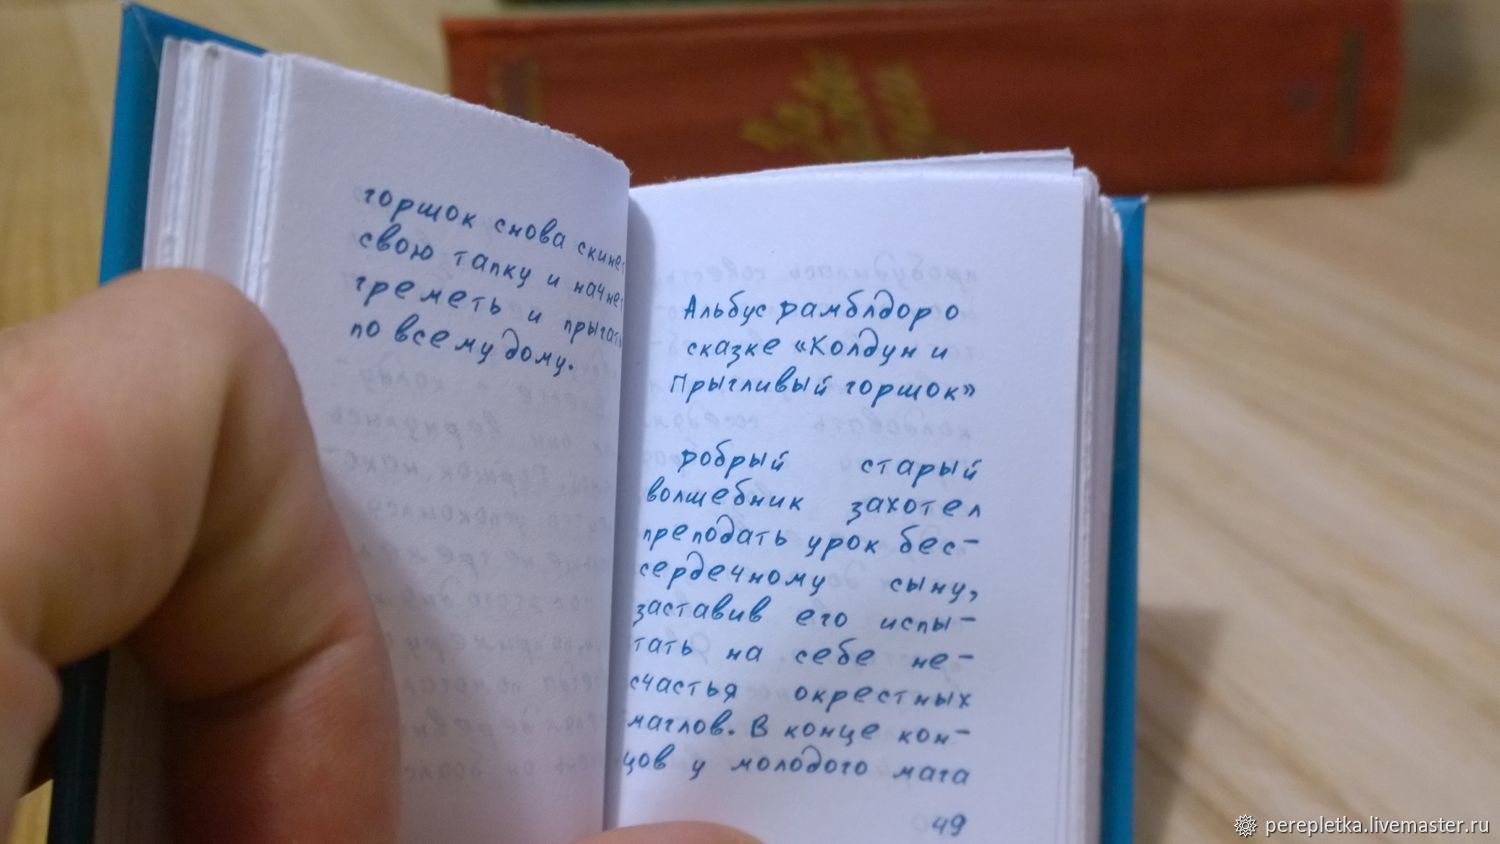 горшок снова скинет
свою тапку и начнет
греметь и прыгать
по всему дому.
Альбус Дамблдор о
сказке «Колдун и
Прыгливый горшок»
Добрый старый
волшебник захотел
преподать урок бес-
сердечному сыну,
заставив его испы-
тать на себе не-
счастья окрестных
маглов. В конце кон-
цов у молодого мага
49
perepletka.livemaster.ru